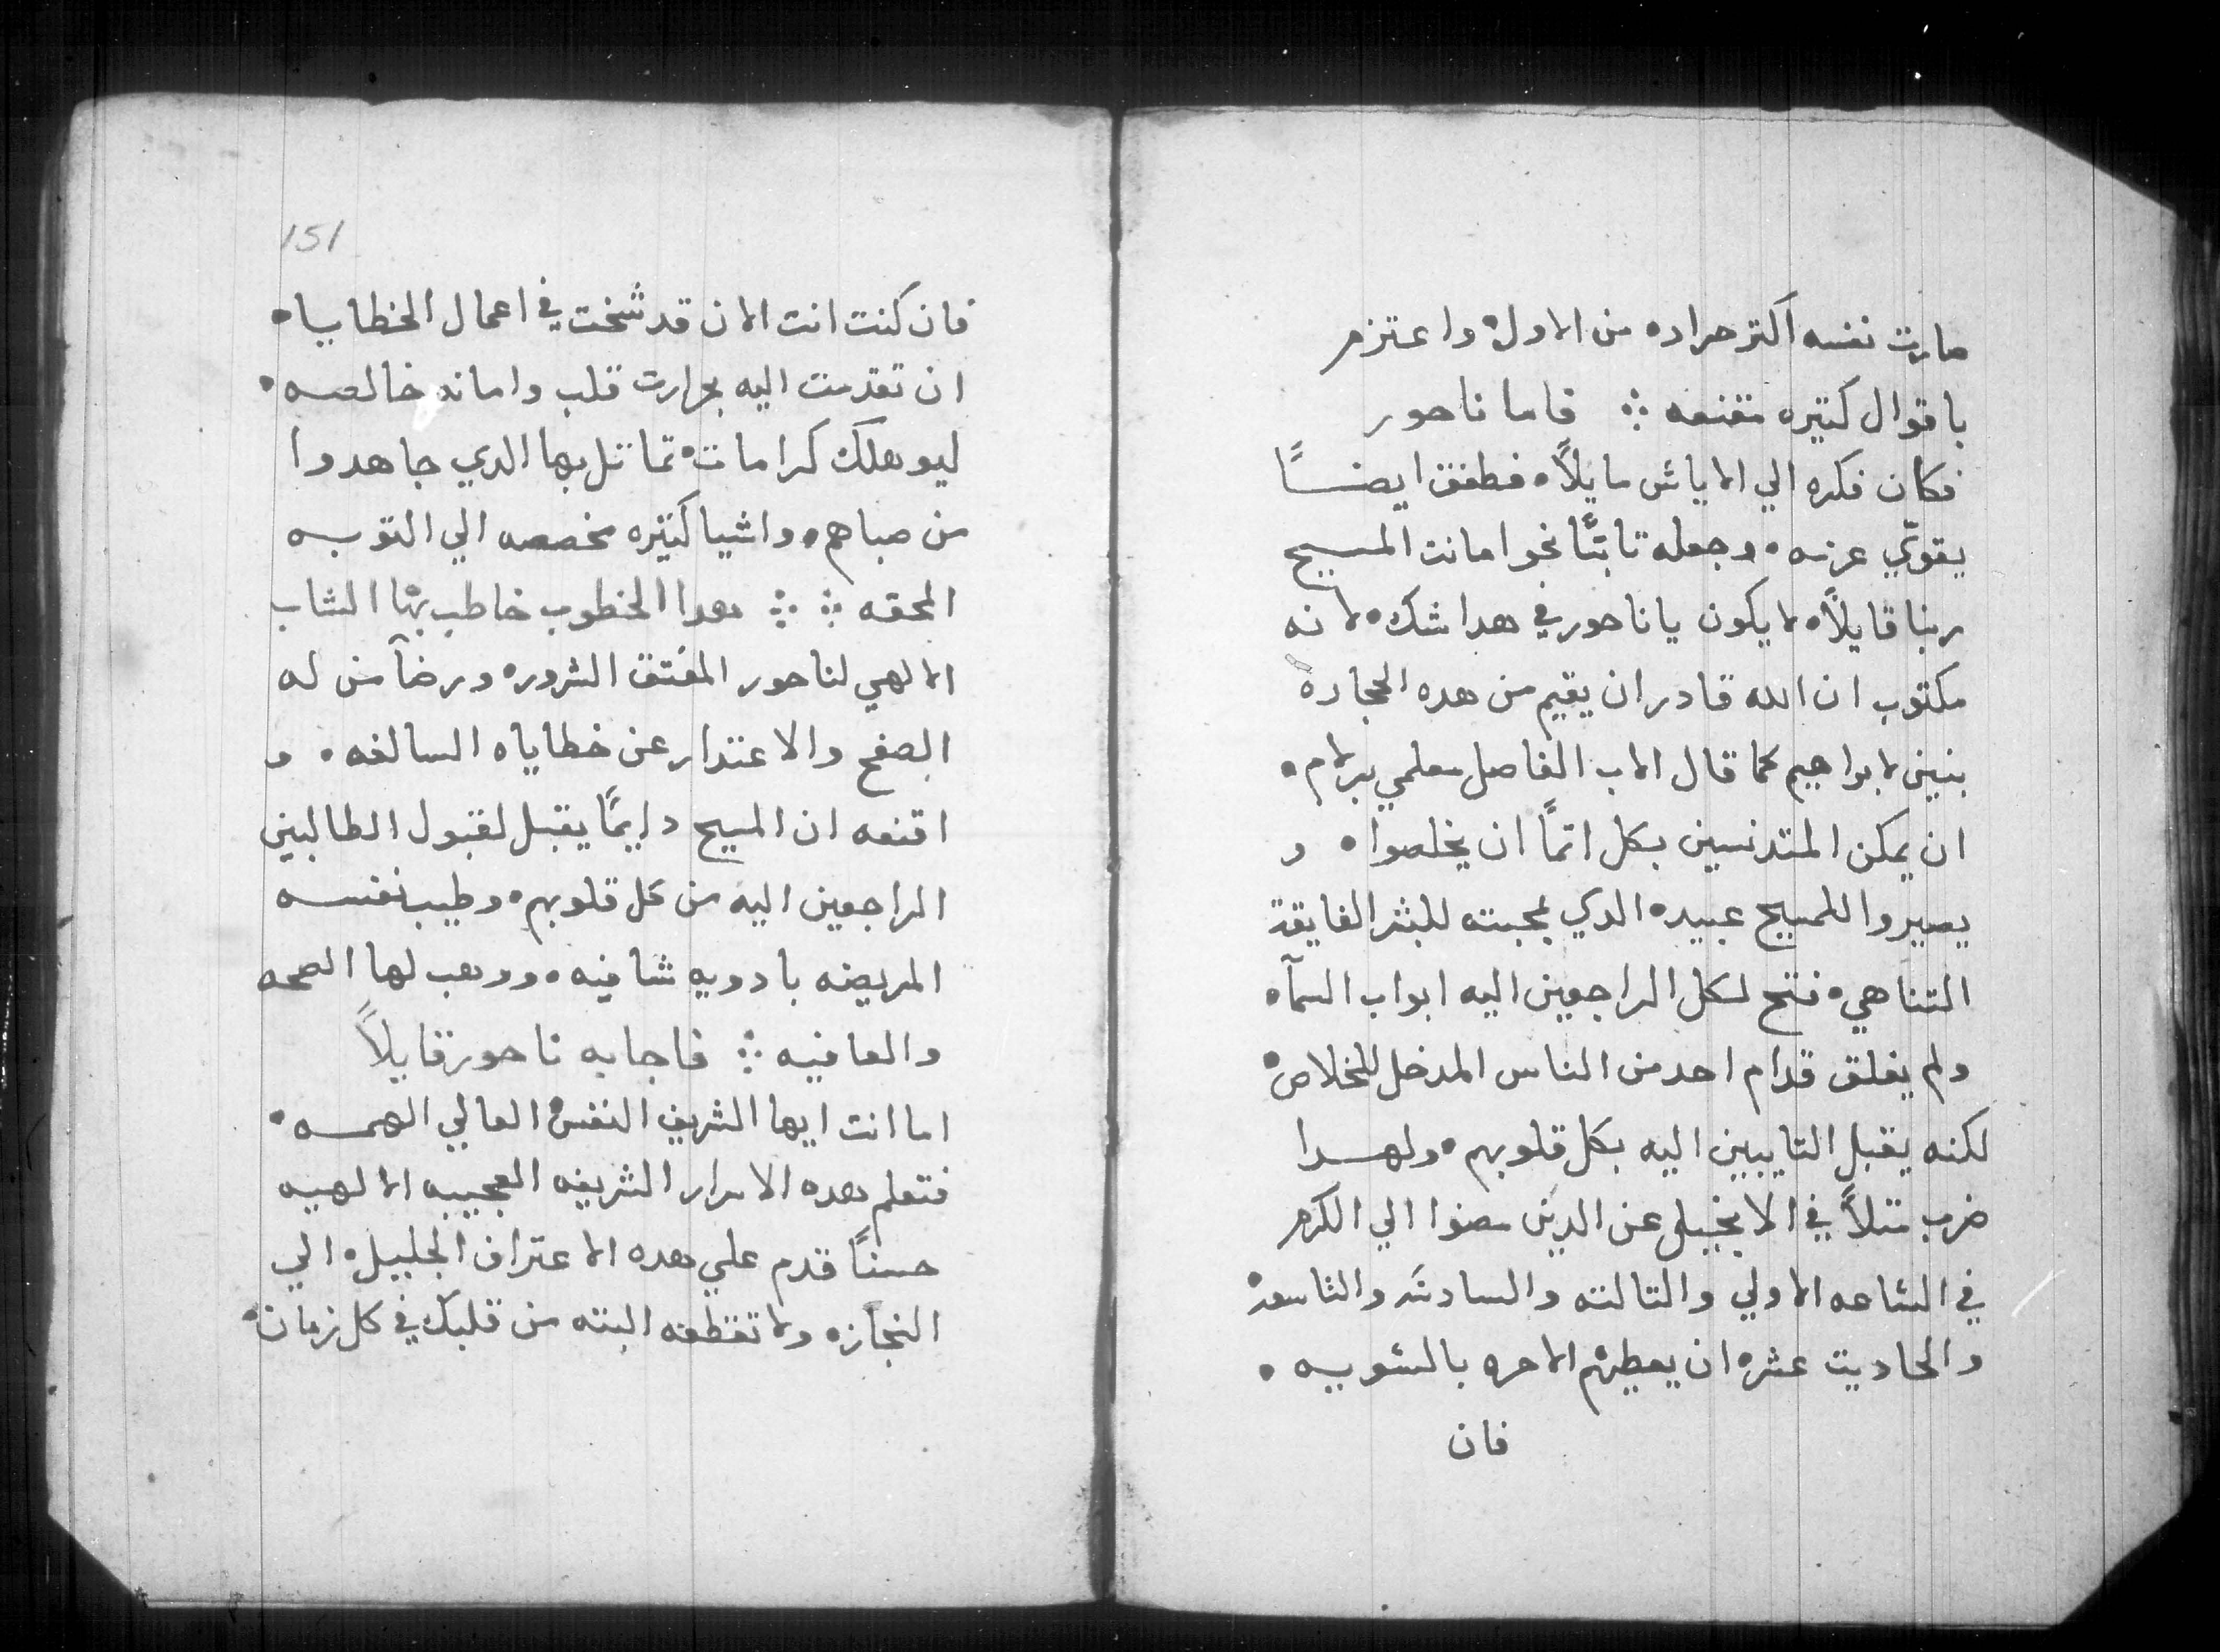 صارت نفسه اكتر حراره من الاول۰ واعتزم
باقوال كتيره مقنعه ܀ فاما ناحور
فكان فكره الي الاياش مايلاً۰ فطفق ايضـــاً
يقوّي عزمه۰ وجعله تابتًا نحو امانت المسيح
ربنا قايلاً۰ لا يكون يا ناحور في هدا شك۰ لانه
مكتوب ان الله قادر ان يقيم من هده الحجاره
بنين لابراهيم كما قال الاب الفاصل معلمي برلام۰
ان يمكن المتدنسين بكل اتمًا ان يخلصوا۰ و
يصيروا للمسيح عبيده الدي بمحبته للبشر الفايقة
التناهي۰ فتح لكل الراجعين اليه ابواب السمآ۰
ولم يغلق قدام احد من الناس المدخل للخلاص۰
لكنه يقبل التاييبين اليه بكل قلوبهم۰ ولهــدا
ضرب متلاً في الانجيل عن الدين مضوا الي الكرم
في الساعه الاولي والتالته والسادسه والتاسعه۰
والحاديت عشره ان يعطيهم الاجره بالسويه۰
فان
151
فان كنت انت الان قد شخت في اعمال الخطايا۰
ان تقدمت اليه بحرارت قلب وامانه خالصه۰
ليوهلك كرامات۰ تماتل بها الدي جاهدوا
من صباهم۰ واشيا كتيره مخصصه الي التوبه
المحقه ܀ ܀ هدا الخطوب خاطب بها الشاب
الالهي لناحور المعتق الشروره ورضآ من له
الصفح والاعتدار عن خطاياه السالفه۰ و
اقنعه ان المسيح دايمًا يقبل لقبول الطالبين
الراجعين اليه من كل قلوبهم۰ وطيب نفسه
المريضه بادويه شافيه۰ ووهب لها الصحه
والعافيه ܀ فاجابه ناحور قايلاً
اما انت ايها الشريف النفس۰ العالي الهمــه۰
فتعلم هده الاسرار الشريفه العجيبه الالهيه
حسنًا قدم علي هده الاعتراف الجليل۰ الي
النجازه ولا تقطعه البته من قلبك في كل زمان۰